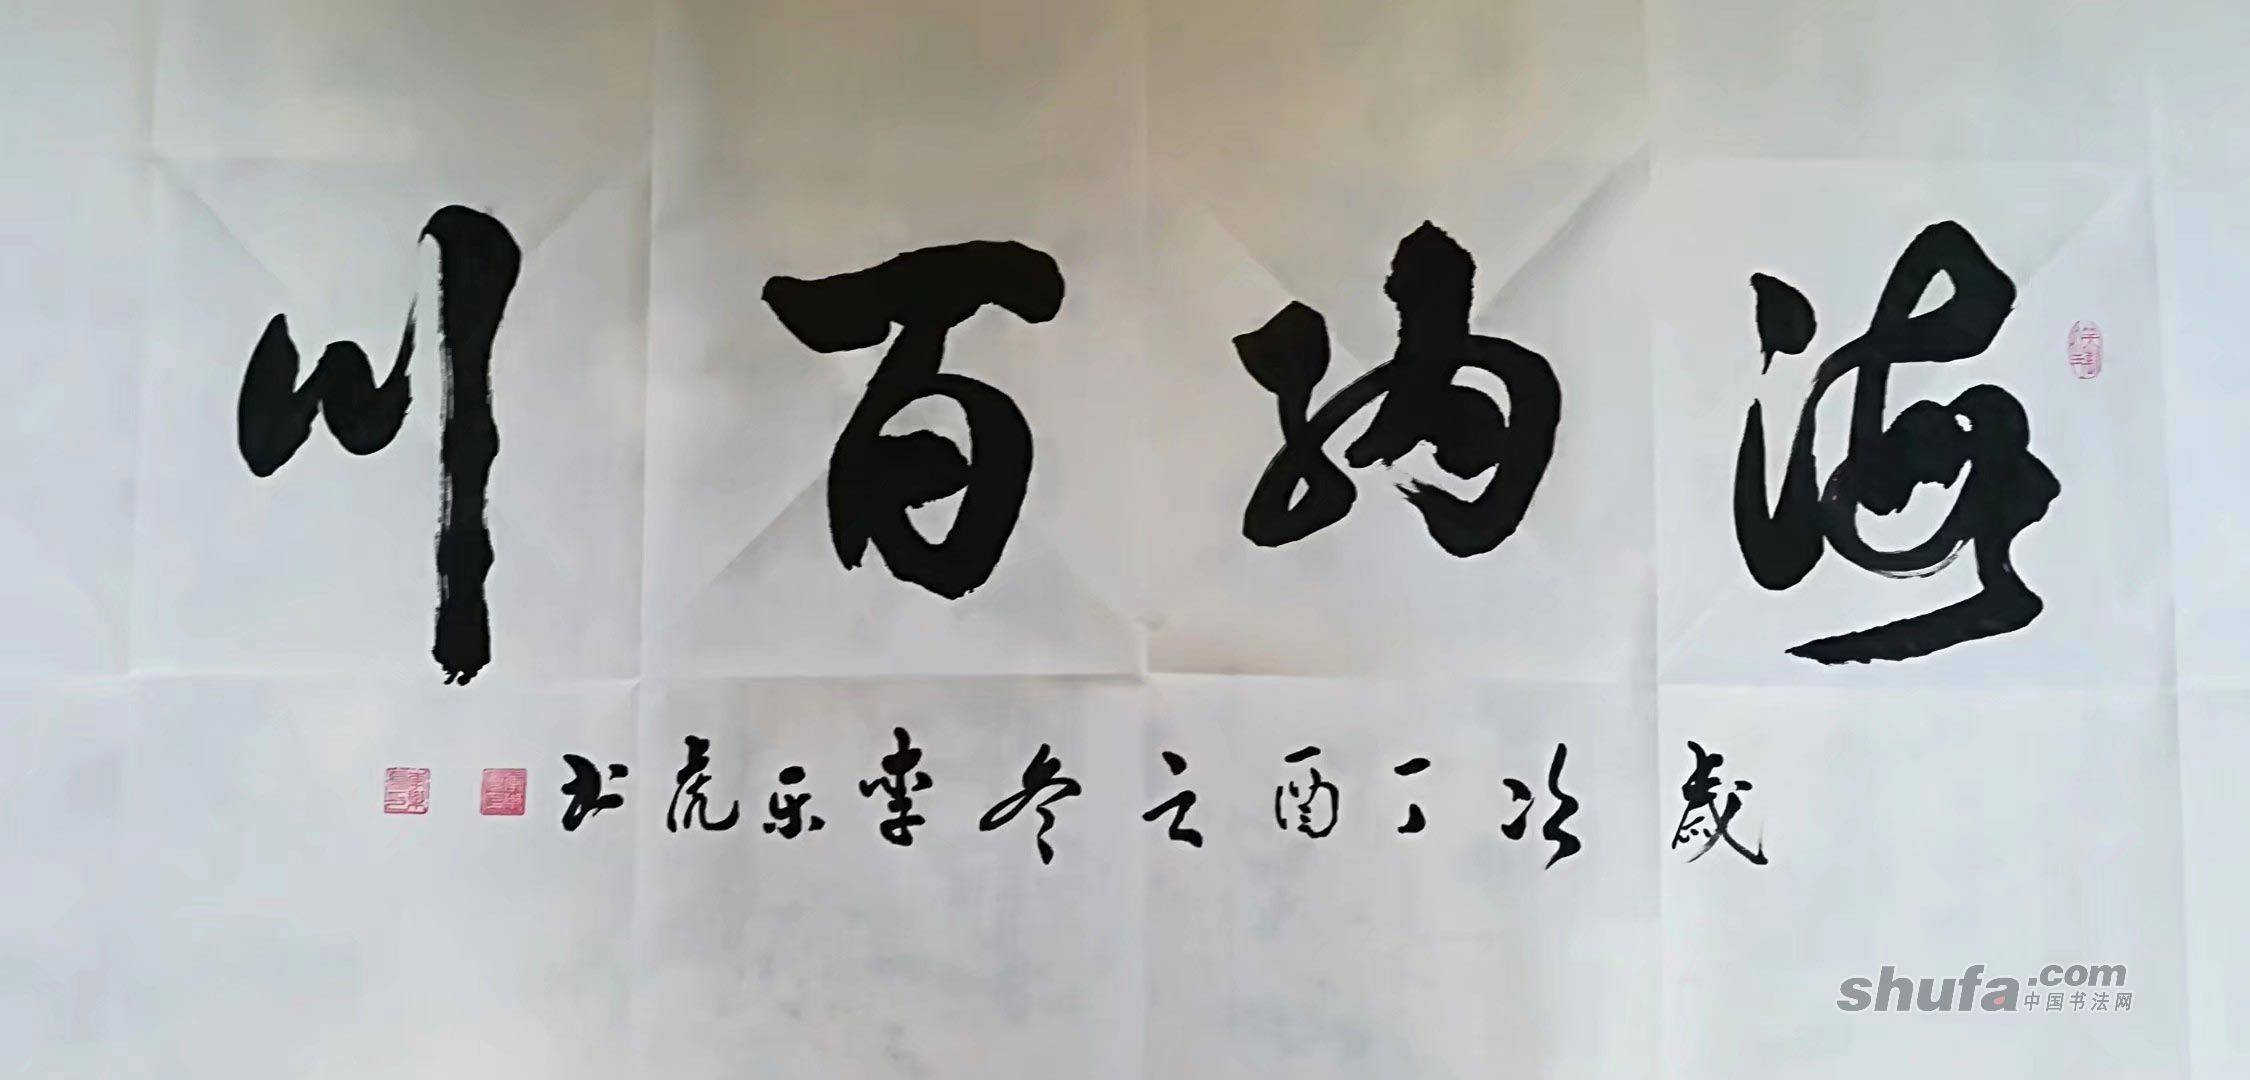 海纳百川
岁次丁酉之冬李乐虎书
shufa.com
中国书法网